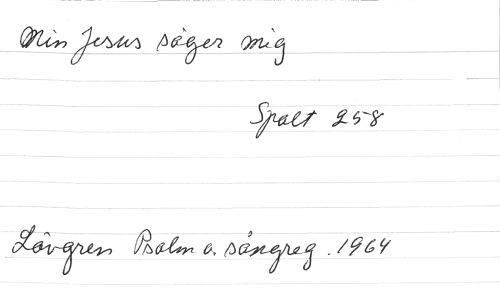 Min Jesus säger mig
Spalt 258
Lövgren Psalm o. sångreg. 1964